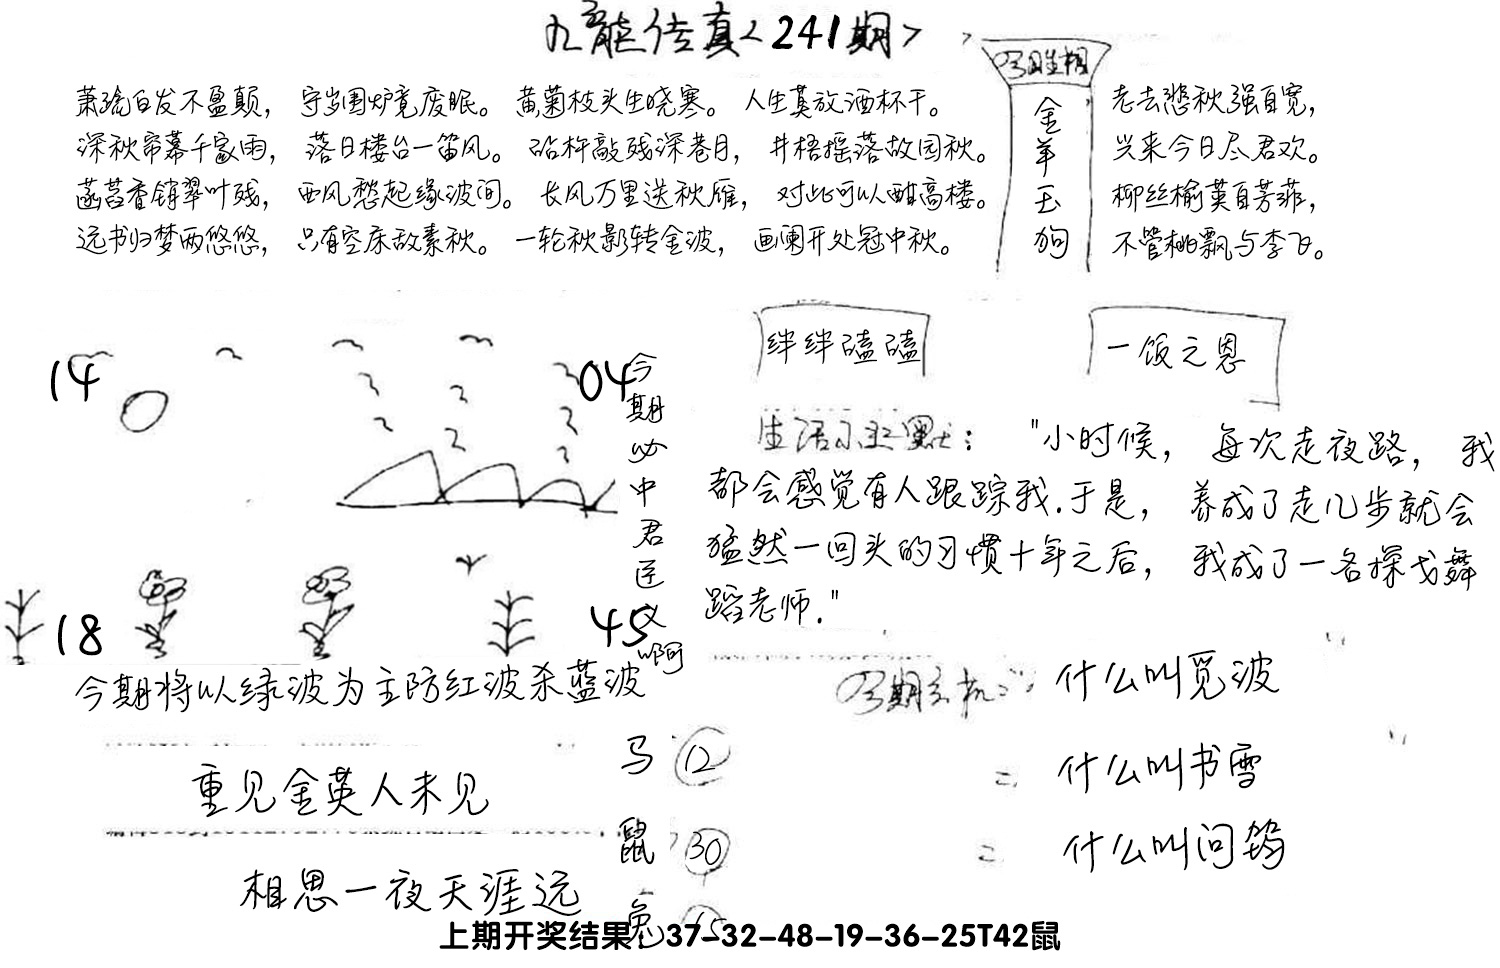 九龙传真<241期>
萧疏白发不盈颠， 守岁围炉竟废眠。 黄菊枝头生晓寒。 人生莫放酒杯干。
深秋帘幕千家雨， 落日楼台一笛风。 砧杵敲残深巷月， 井梧摇落故园秋。
菡萏香销翠叶残， 西风愁起绿波间。 长风万里送秋雁， 对此可以酣高楼。
远书归梦两悠悠， 只有空床敌素秋。 一轮秋影转金波， 画阑开处冠中秋。
今日生相
金羊玉狗
老去悲秋强自宽，
兴来今日尽君欢。
柳丝榆荚自芳菲，
不管桃飘与李飞。
绊绊磕磕
一饭之恩
14
04
18
45
今期必中君臣义啊
生活小幽默： "小时候， 每次走夜路， 我
都会感觉有人跟踪我.于是， 养成了走几步就会
猛然一回头的习惯十年之后， 我成了一名探戈舞
蹈老师."
今期将以绿波为主防红波杀蓝波
重见金英人未见
相思一夜天涯远
马 12
鼠 30
兔 15
今期玄机： 什么叫觅波
= 什么叫书雪
= 什么叫问鸳
上期开奖结果：37-32-48-19-36-25T42鼠